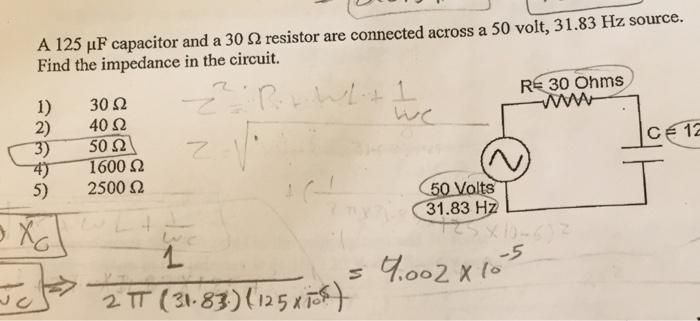 A 125 µF capacitor and a 30 Ω resistor are connected across a 50 volt, 31.83 Hz source.
Find the impedance in the circuit.
1) 30 Ω
2) 40 Ω
3) 50 Ω
4) 1600 Ω
5) 2500 Ω
R= 30 Ohms
C = 12
50 Volts
31.83 Hz
Xc
⇒ 1 / 2π (31.83)(125 x 10⁻⁶) = 4.002 x 10⁻⁵